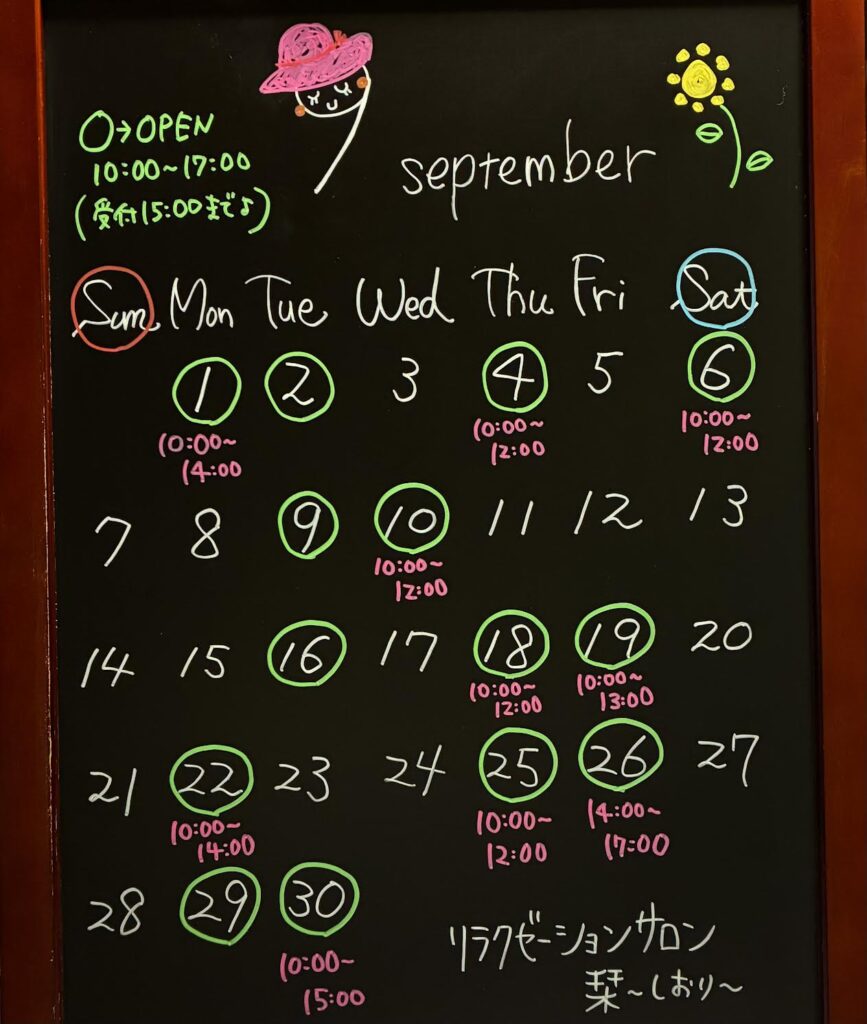 ○→OPEN
10:00~17:00
(受付15:00まで♪)
9 september
Sun Mon Tue Wed Thu Fri Sat
1 2 3 4 5 6
10:00~ 10:00~ 10:00~
14:00 12:00 12:00
7 8 9 10 11 12 13
10:00~
12:00
14 15 16 17 18 19 20
10:00~ 10:00~
12:00 13:00
21 22 23 24 25 26 27
10:00~ 10:00~ 14:00~
14:00 12:00 17:00
28 29 30
10:00~
15:00
リラクゼーションサロン
栞~しおり~